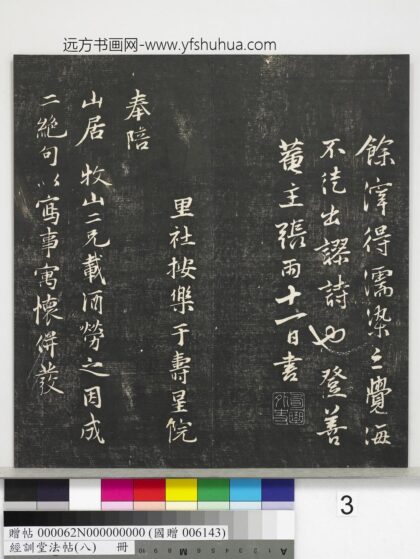 远方书画网-www.yfshuhua.com
餘滓得濡染之覺海
不徒出謬詩也登善
菴主張雨十一日書
里社按樂于壽星院
奉陪
山居牧山二兄載酒勞之因成
二絕句以寫事寓懷併發
3
贈帖 000062N000000000 (國贈 006143)
經訓堂法帖(八) 冊